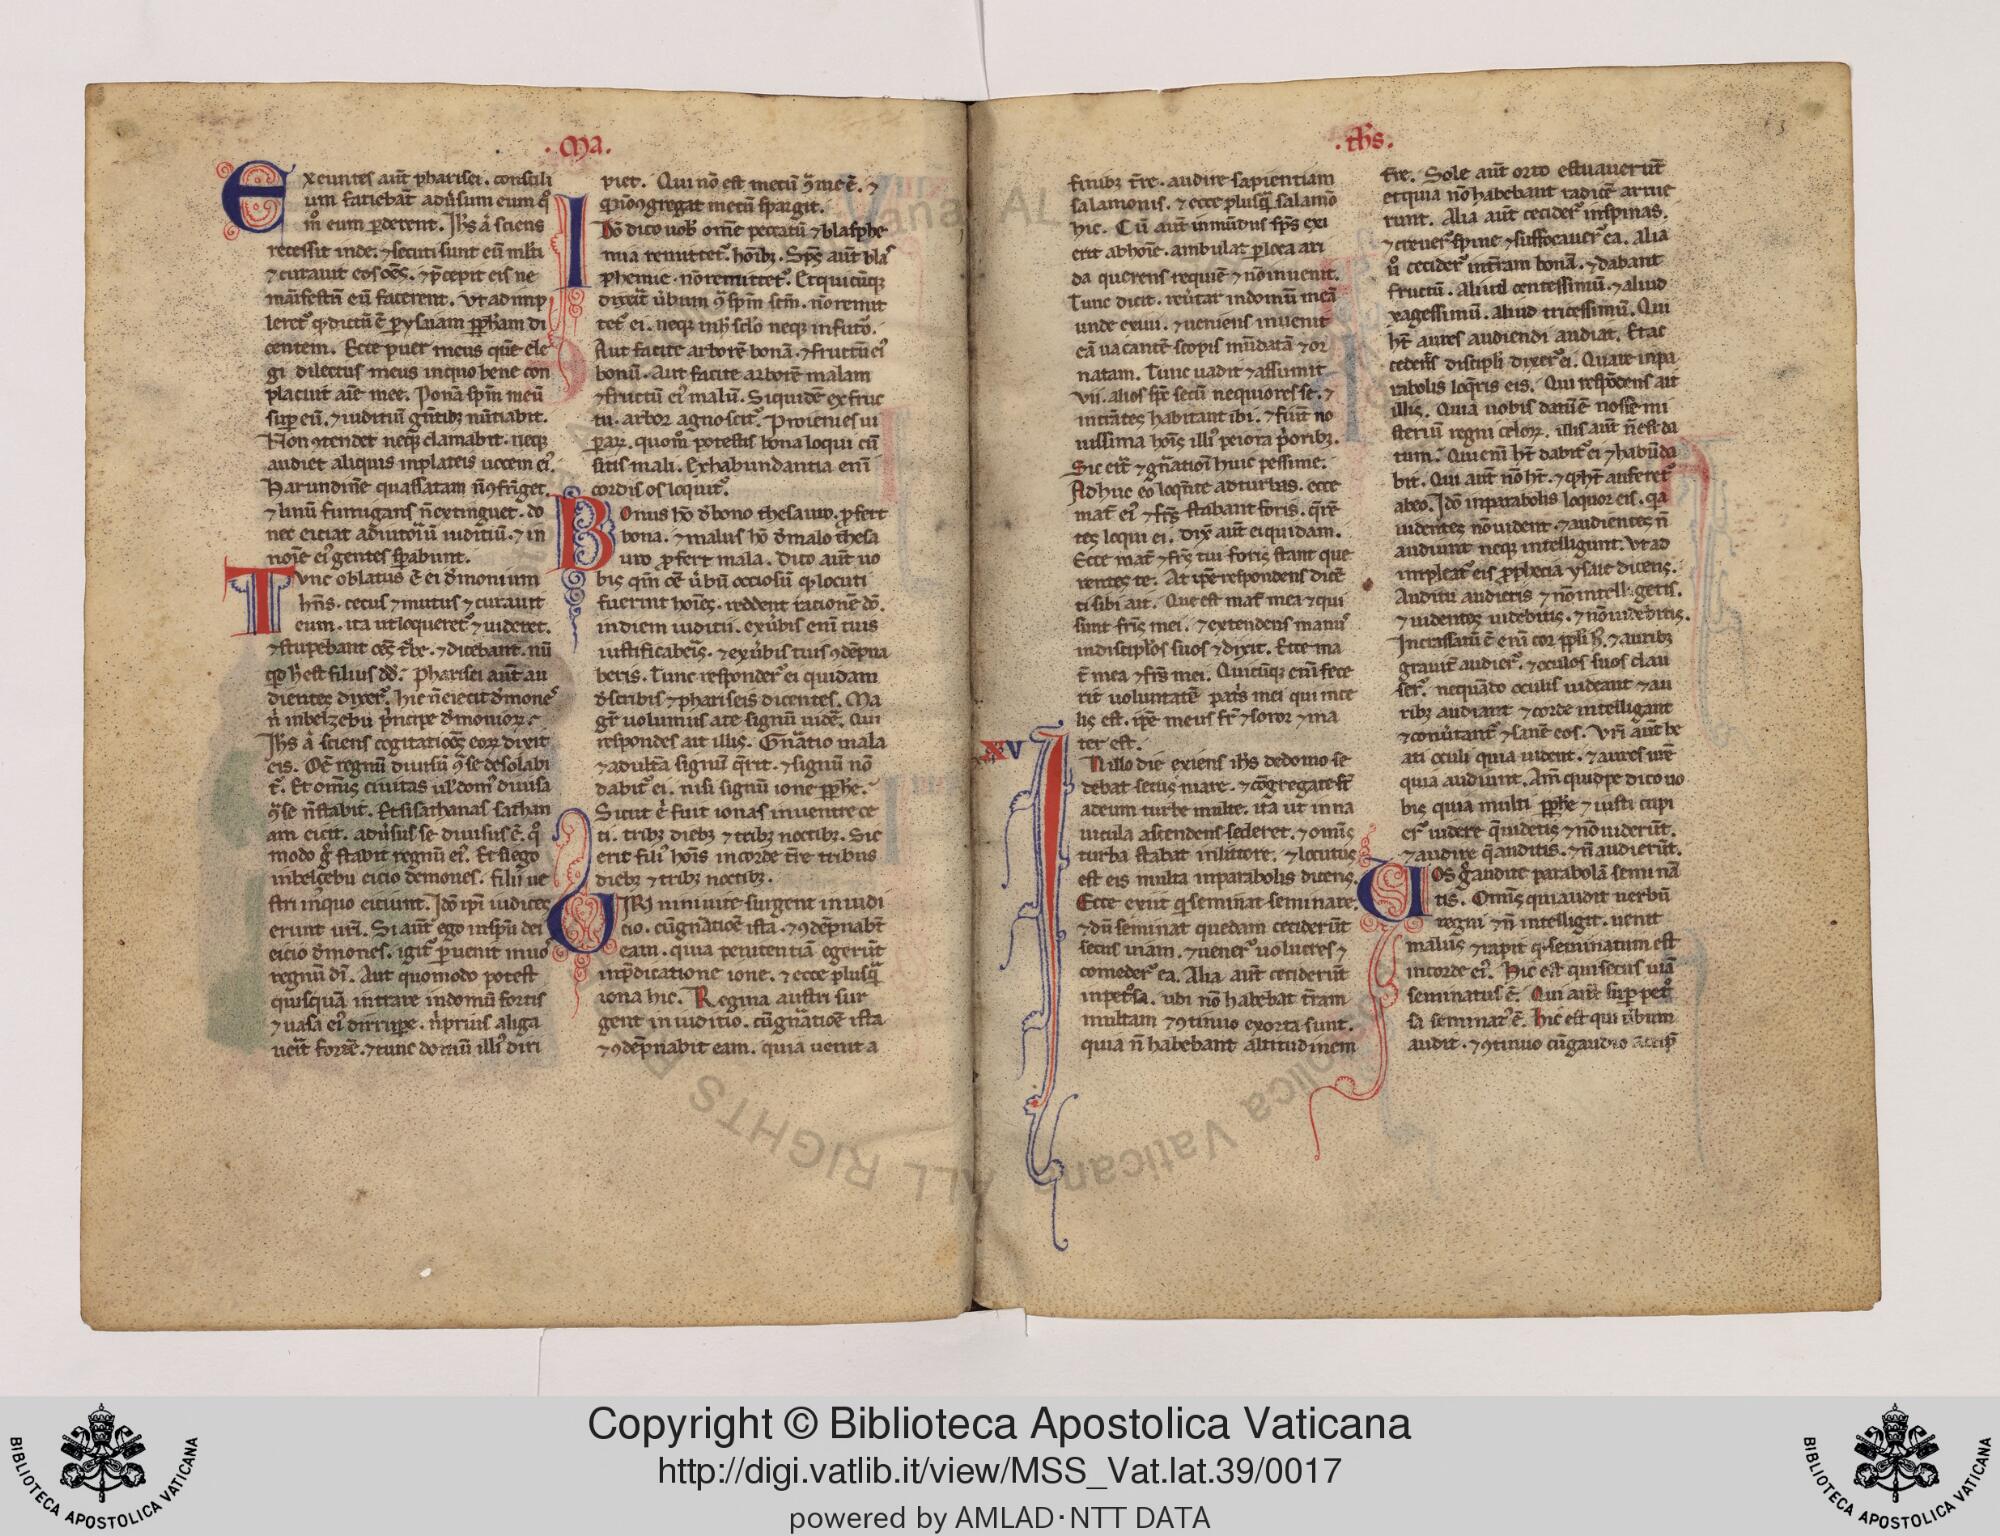 · Ma ·
Exeuntes aut̄ pharisei. consili
um faciebāt adūsum eum q̊
m̊ eum ꝑderent. Ihs̄ à sciens
recessit inde. ⁊ secuti sunt eū mlti
⁊ curauit eos oēs. ⁊ p̄cepit eis ne
manifestū eū facerent. Vt adimp
leret᷒ qͥ dictū ē ꝑ ysaiam ꝓph̄am di
centem. Ecce puer meus quē ele
gi dilectus meus inquo bene con
placuit aīe mee. Ponā sp̄m meū
suꝑ eū. ⁊ iuditiū gn̄tibꝫ nūtiabit.
Non ꝯtendet neqꝫ clamabit. neqꝫ
audiet aliquis inplateis uocem eiꝰ.
Harundinē quassatam n̄ ꝯfrīget.
⁊ linū fumigans n̄ extinguet. do
nec eiciat ad uictoriā iuditiū. ⁊ in
noīe eiꝰ gentes sperabunt.
Tunc oblatus ē ei dēmonium
hn̄s. cecus ⁊ mutus ⁊ curauit
eum. ita ut loqueret᷒ ⁊ uideret.
⁊ stupebant oēs t̄be. ⁊ dicebant. nū
qͥd h̄ est filius dd̄. Pharisei aut̄ au
dientes dixer᷒. hic n̄ eiecit dēmones
n̄ inbelzebu p̄ncipe dēmonioꝝ.
Ihs̄ à sciens cogitationes eoꝝ dixit
eis. Oē regnū diuisū ꝯ se desolabi
t᷒. Et omīs ciuitas ul̄ domꝰ diuisa
ꝯ se n̄ stabit. Et si sathanas sathan
am eicit. adūsus se diuisus ē. q̊
modo ḡ stabit regnū eiꝰ. Et si ego
inbelcebu eicio demones. filii ue
stri inquo eiciunt. Idō ip̄i iudices
erunt ur̄i. Si aut̄ ego insp̄u dei
eicio dēmones. igit᷒ ꝑuenit inuos
regnū di̅. Aut quomodo potest
quisquā intrare indomū fortis
⁊ uasa eiꝰ dirripe. n̄ prius aliga
uerit fortē. ⁊ tunc domū illiꝰ diri
piet. Qui nō est mecū ꝯ me ē. ⁊
q̄ nō ꝯgregat mecū spargit.
Idō dico uob̄. omē peccatū ⁊ blasphe
mia remittet᷒ hoībꝫ. Sp̄s aut̄ blas
phemie. nō remittet᷒. Et quicūqꝫ
dixerit ūbum ꝯ sp̄m sc̄m. nō remit
tet᷒ ei. neqꝫ inh̄ sclō neqꝫ in futō.
Aut facite arborē bonā. ⁊ fructū eiꝰ
bonū. Aut facite arborē malam
⁊ fructū eiꝰ malū. Siquidē ex fruc
tu. arbor agnoscit᷒. Proienies ui
ꝑaꝝ. quom̊ potestis bona loqui cū
sitis mali. Exhabundantia enī
cordis os loquit᷒.
Bonus hō d̄ bono thesauro. ꝓfert
bona. ⁊ malus hō d̄ malo thesa
uro ꝓfert mala. Dico aut̄ uo
bis qm̄ oē ūbū occiosū qͥ locuti
fuerint hoīes. reddent rationē dō.
in diem iuditii. ex ūbis enī tuis
iustificaberis. ⁊ ex ūbis tuis ꝯdēpna
beris. Tunc responder᷒ ei quidam
d̄ scribis ⁊ phariseis dicentes. Ma
gr̄ uolumus a te signū uidē. Qui
respondes ait illis. Gn̄atio mala
⁊ adultā signū q̄rit. ⁊ signū nō
dabit᷒ ei. nisi signū ione ꝓphe.
Sicut ē fuit ionas in uentre ce
ti. tribꝫ diebꝫ ⁊ tribꝫ noctibꝫ. Sic
erit filiꝰ hoīs in corde t̄re tribus
diebꝫ ⁊ tribꝫ noctibꝫ.
UIRI niniuite surgent in iudi
cio. cū gn̄atiōē ista. ⁊ ꝯdēpnabt̄
eam. quia penitentiā egerūt
inp̄dicatione ione. ⁊ ecce plusq̄
iona hic. Regina austri sur
gent in iuditio. cū gn̄atiōē ista
⁊ ꝯdēpnabit eam. quia uenit a
· ths ·
finibꝫ t̄re. audire sapientiam
salamonis. ⁊ ecce plusq̄ salamō
hic. Cū aut̄ inmūdus sp̄s exi
erit ab hoīe. ambulat ꝑ loca ari
da querens requiē ⁊ nō inuenit.
Tunc dicit. reūtar in domū meā
unde exiui. ⁊ ueniens inuenit
eā uacantē scopis mūdatā ⁊ or
natam. Tunc uadit ⁊ assumit
vii. alios sp̄s secū nequiores se. ⁊
intrātes habitant ibi. ⁊ fiūt no
uissima hoīs illiꝰ peiora p̄oribꝫ.
Sic erit ⁊ gn̄ationi huic pessime.
Adhuc eo loq̄nte ad turbas. ecce
mat᷒ eiꝰ ⁊ fr̄s stabant foris. q̄rē
tes loqui ei. Dix̄ aut̄ ei quidam.
Ecce mat᷒ ⁊ fr̄s tui foris stant que
rentes te. At ip̄e respondens dicē
ti sibi ait. Que est mat᷒ mea ⁊ qui
sunt fr̄s mei. ⁊ extendens manus
in discip̄los suos ⁊ dixit. Ecce ma
t᷒ mea ⁊ fr̄s mei. Quicūqꝫ enī fece
rit uoluntatē patꝭ mei qui in ce
lis est. ip̄e meus fr̄ ⁊ soror ⁊ ma
ter est.
XV
In illo die exiens ihs̄ de domo se
debat secus mare. ⁊ cōgregate sūt
ad eum turbe multe. ita ut in na
uicula ascendens sederet. ⁊ omīs
turba stabat in littore. ⁊ locutus
est eis multa in parabolis dicens.
Ecce exiit qͥ seminat seminare.
⁊ dū seminat quedam ceciderūt
secus uiam. ⁊ uener᷒ uolucres ⁊
comeder᷒ ea. Alia aut̄ ceciderūt
inpet᷒sa. ubi nō habebāt t̄ram
multam ⁊ ꝯtinuo exorta sunt.
quia n̄ habebant altitudinem
t̄re. Sole aut̄ orto estuauerūt
et quia nō habebant radicē arue
runt. Alia aut̄ cecider᷒ in spinas.
⁊ creuer᷒ spine ⁊ suffocauer᷒ ea. Alia
ū cecider᷒ in t̄ram bonā. ⁊ dabant
fructū. Aliud centessimū. ⁊ aliud
xagessimū. aliud tricessimū. Qui
ht̄ aures audiendi audiat. Et ac
cedent̄s discipl̄i dixer᷒ ei. Quare in pa
rabolis loq̄ris eis. Qui respōdens ait
illis. Quia uobis datū ē nosse mi
steriū regni celoꝝ. illis aut̄ n̄ est da
tum. Qui enī ht̄ dabit᷒ ei ⁊ habūda
bit. Qui aut̄ nō ht̄. ⁊ qͥ ht̄ auferet᷒
ab eo. Idō in parabolis loquor eis. qa
uidentes nō uident. ⁊ audientes n̄
audiunt neqꝫ intelligunt. Vt ad
impleat᷒ eis ꝓphecia ysaie dicens.
Auditu audietis ⁊ nō intelligetis.
⁊ uidentes uidebitis. ⁊ nō uidebitis.
Incrassatū ē enī cor ppl̄i hꝰ. ⁊ auribꝫ
grauit᷒ audier᷒. ⁊ oculos suos clau
ser᷒. nequādo oculis uideant ⁊ au
ribꝫ audiant ⁊ corde intelligant
⁊ conūtant᷒ ⁊ sanē eos. Vr̄i aut̄ be
ati oculi quia uident. ⁊ aures ur̄e
quia audiunt. Am̄ quippe dico uo
bis quia multi ꝓphe ⁊ iusti cupi
er᷒ uidere q̄ uidetis ⁊ nō uiderūt.
⁊ audire q̄ auditis. ⁊ n̄ audierūt.
Uos ḡ audite parabolā seminā
tis. Omīs qui audit uerbū
regni ⁊ n̄ intelligit. uenit
malus ⁊ rapit qͥ seminatum est
in corde eiꝰ. Hic est qui secus uiā
seminatus ē. Qui aut̄ suꝑ pet᷒
sa seminatꝰ ē. hic est qui ūbum
audit. ⁊ ꝯtinuo cū gaudio accip̄
Copyright © Biblioteca Apostolica Vaticana
http://digi.vatlib.it/view/MSS_Vat.lat.39/0017
powered by AMLAD·NTT DATA
BIBLIOTECA APOSTOLICA VATICANA
BIBLIOTECA APOSTOLICA VATICANA